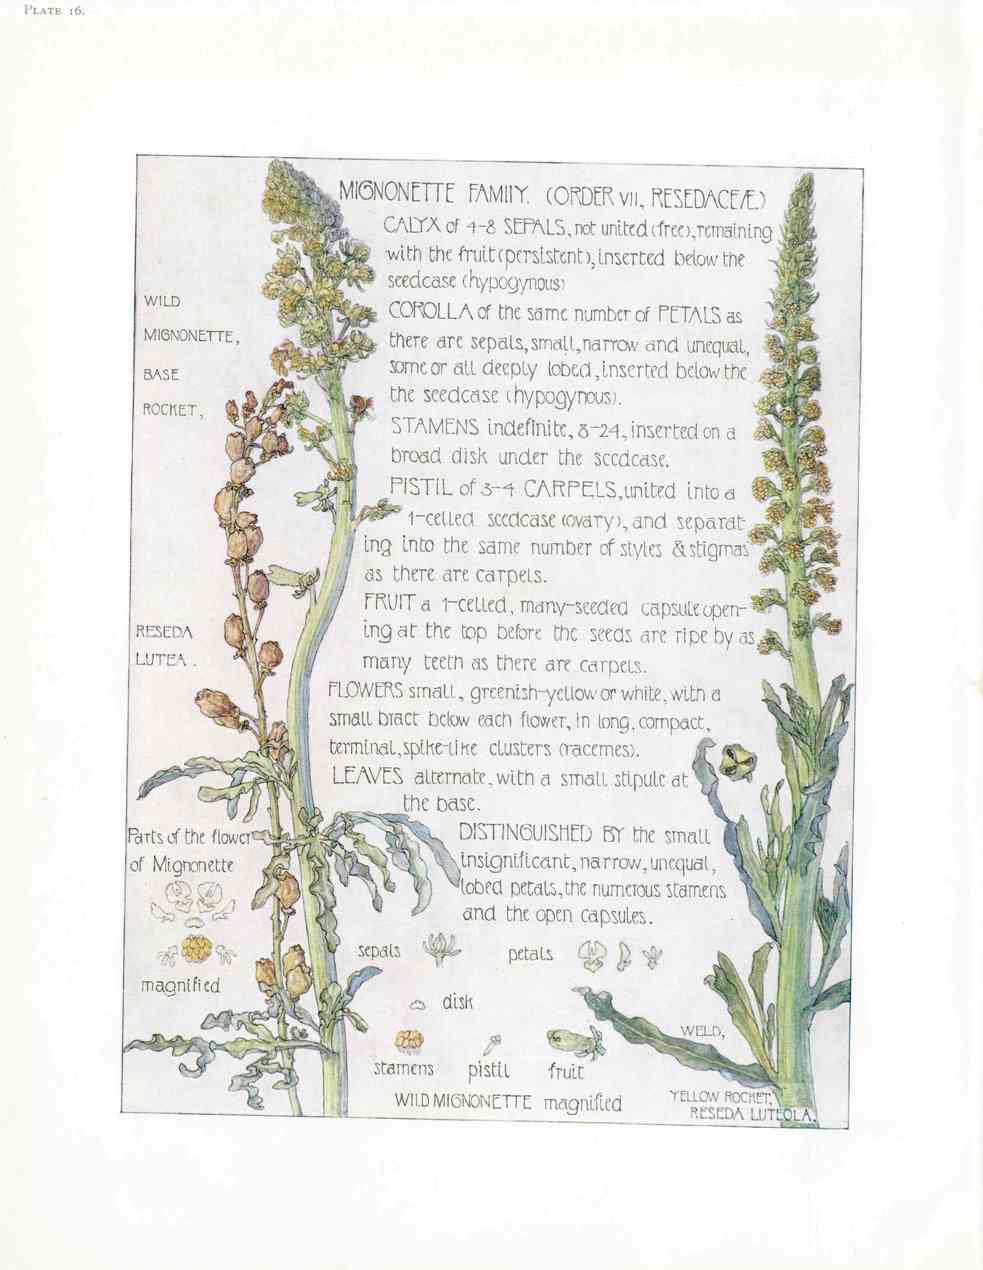 PLATE 16.
MIGNONETTE FAMILY. (ORDER VII, RESEDACEÆ)
CALYX of 4-8 SEPALS, not united (free), remaining
with the fruit (persistent), inserted below the
seedcase (hypogynous)
COROLLA of the same number of PETALS as
there are sepals, small, narrow and unequal,
some or all deeply lobed, inserted below the
the seedcase (hypogynous).
STAMENS indefinite, 8-24, inserted on a
broad disk under the seedcase.
PISTIL of 3-4 CARPELS, united into a
1-celled seedcase (ovary), and separat-
ing into the same number of styles & stigmas
as there are carpels.
FRUIT a 1-celled, many-seeded capsule open-
ing at the top before the seeds are ripe by as
many teeth as there are carpels.
FLOWERS small, greenish-yellow or white, with a
small bract below each flower, in long, compact,
terminal, spike-like clusters (racemes).
LEAVES alternate, with a small stipule at
the base.
DISTINGUISHED BY the small
insignificant, narrow, unequal,
lobed petals, the numerous stamens
and the open capsules.
WILD
MIGNONETTE,
BASE
ROCKET,
RESEDA
LUTEA.
Parts of the flower
of Mignonette
magnified
sepals petals
disk
stamens pistil fruit
WILD MIGNONETTE magnified
WELD,
YELLOW ROCKET,
RESEDA LUTEOLA.